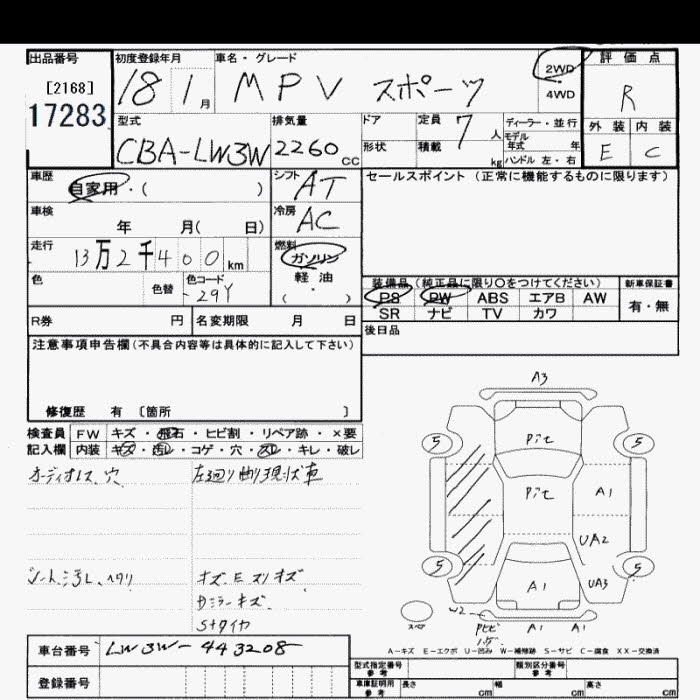 出品番号
[2168]
17283
初度登録年月
18 1 月
車名・グレード
MPV スポーツ
2WD
4WD
評価点
R
外装 内装
E C
型式
CBA-LW3W
排気量
2260 cc
ドア
形状
定員 7 人
積載 kg
ディーラー・並行
モデル
年式 年
ハンドル 左・右
車歴
自家用・( )
シフト AT
冷房 AC
車検
年 月( 日)
走行
13万2千400 km
燃料
ガソリン
軽油
( )
色
色替
色コード
29Y
セールスポイント (正常に機能するものに限ります)
装備品 (純正品に限り○をつけてください)
新車保証書
PS PW ABS エアB AW
SR ナビ TV カワ
有・無
R券 円 名変期限 月 日
後日品
注意事項申告欄(不具合内容等は具体的に記入して下さい)
修復歴 有 〔箇所 〕
検査員
記入欄
FW キズ・飛石・ヒビ割・リペア跡・×要
内装 キズ・汚レ・コゲ・穴・スレ・キレ・破レ
オーディオレス 穴
左廻り曲り現状車
シート汚レ、ヘタリ
キズ、E スリキズ
Dミラーキズ
Sタイヤ
A3
5
Pit
5
Pit
A1
UA2
5
A1
UA3
5
スペア
W2
A1
A1
A-キズ E-エクボ U-凹み W-補修跡 S-サビ C-腐食 XX-交換済
車台番号 LW3W-443208
登録番号
型式指定番号
参考
類別区分番号
参考
車庫証明用
参考
長さ cm 幅 cm 高さ cm